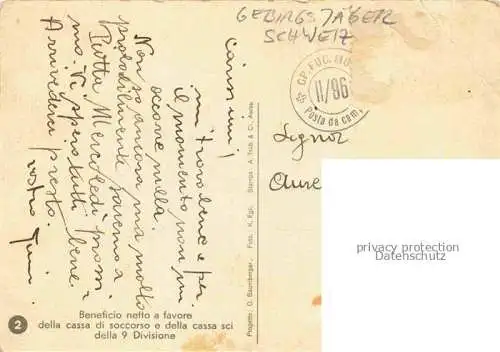 GEBIRGSJÄGER
SCHWEIZ
CP. FUC. MO
II/86
Posta da cam
Carissimi,
mi trovo bene e per
il momento non mi
occorre nulla.
Non so ancora ma molto
probabilmente saremo a
Piotta Mercoledì prossi
mo. Vi spero tutti bene.
Arrivederci presto.
vostro
Signor
Aure
privacy protection
Datenschutz
Progetto: O. Baumberger. Foto. K. Egli. Stampa: A. Trüb & C., Aarau
2
Beneficio netto a favore
della cassa di soccorso e della cassa sci
della 9 Divisione